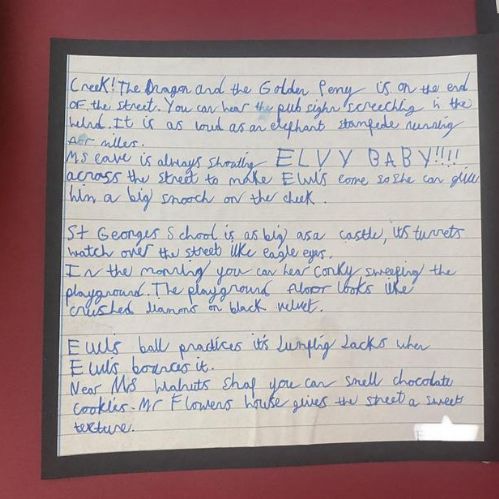 Creek! The Dragon and the Golden Penny is on the end
of the street. You can hear the pub sighn screeching in the
wind. It is as loud as an elephant stampede running
for miles.
MS eave is always shouting ELVY BABY!!!!
across the street to make Elwis come so she can give
him a big smooch on the cheek.
St Georges School is as big as a castle, its turrets
watch over the street like eagle eyes.
In the morning you can hear Conky sweeping the
playground. The playground floor looks like
crushed diamons on black velvet.
Elwis ball practises it's Jumping Jacks when
Elwis bounces it.
Near Ms Walnuts shop you can smell chocolate
cookies. Mr Flowers house gives the street a sweet
texture.